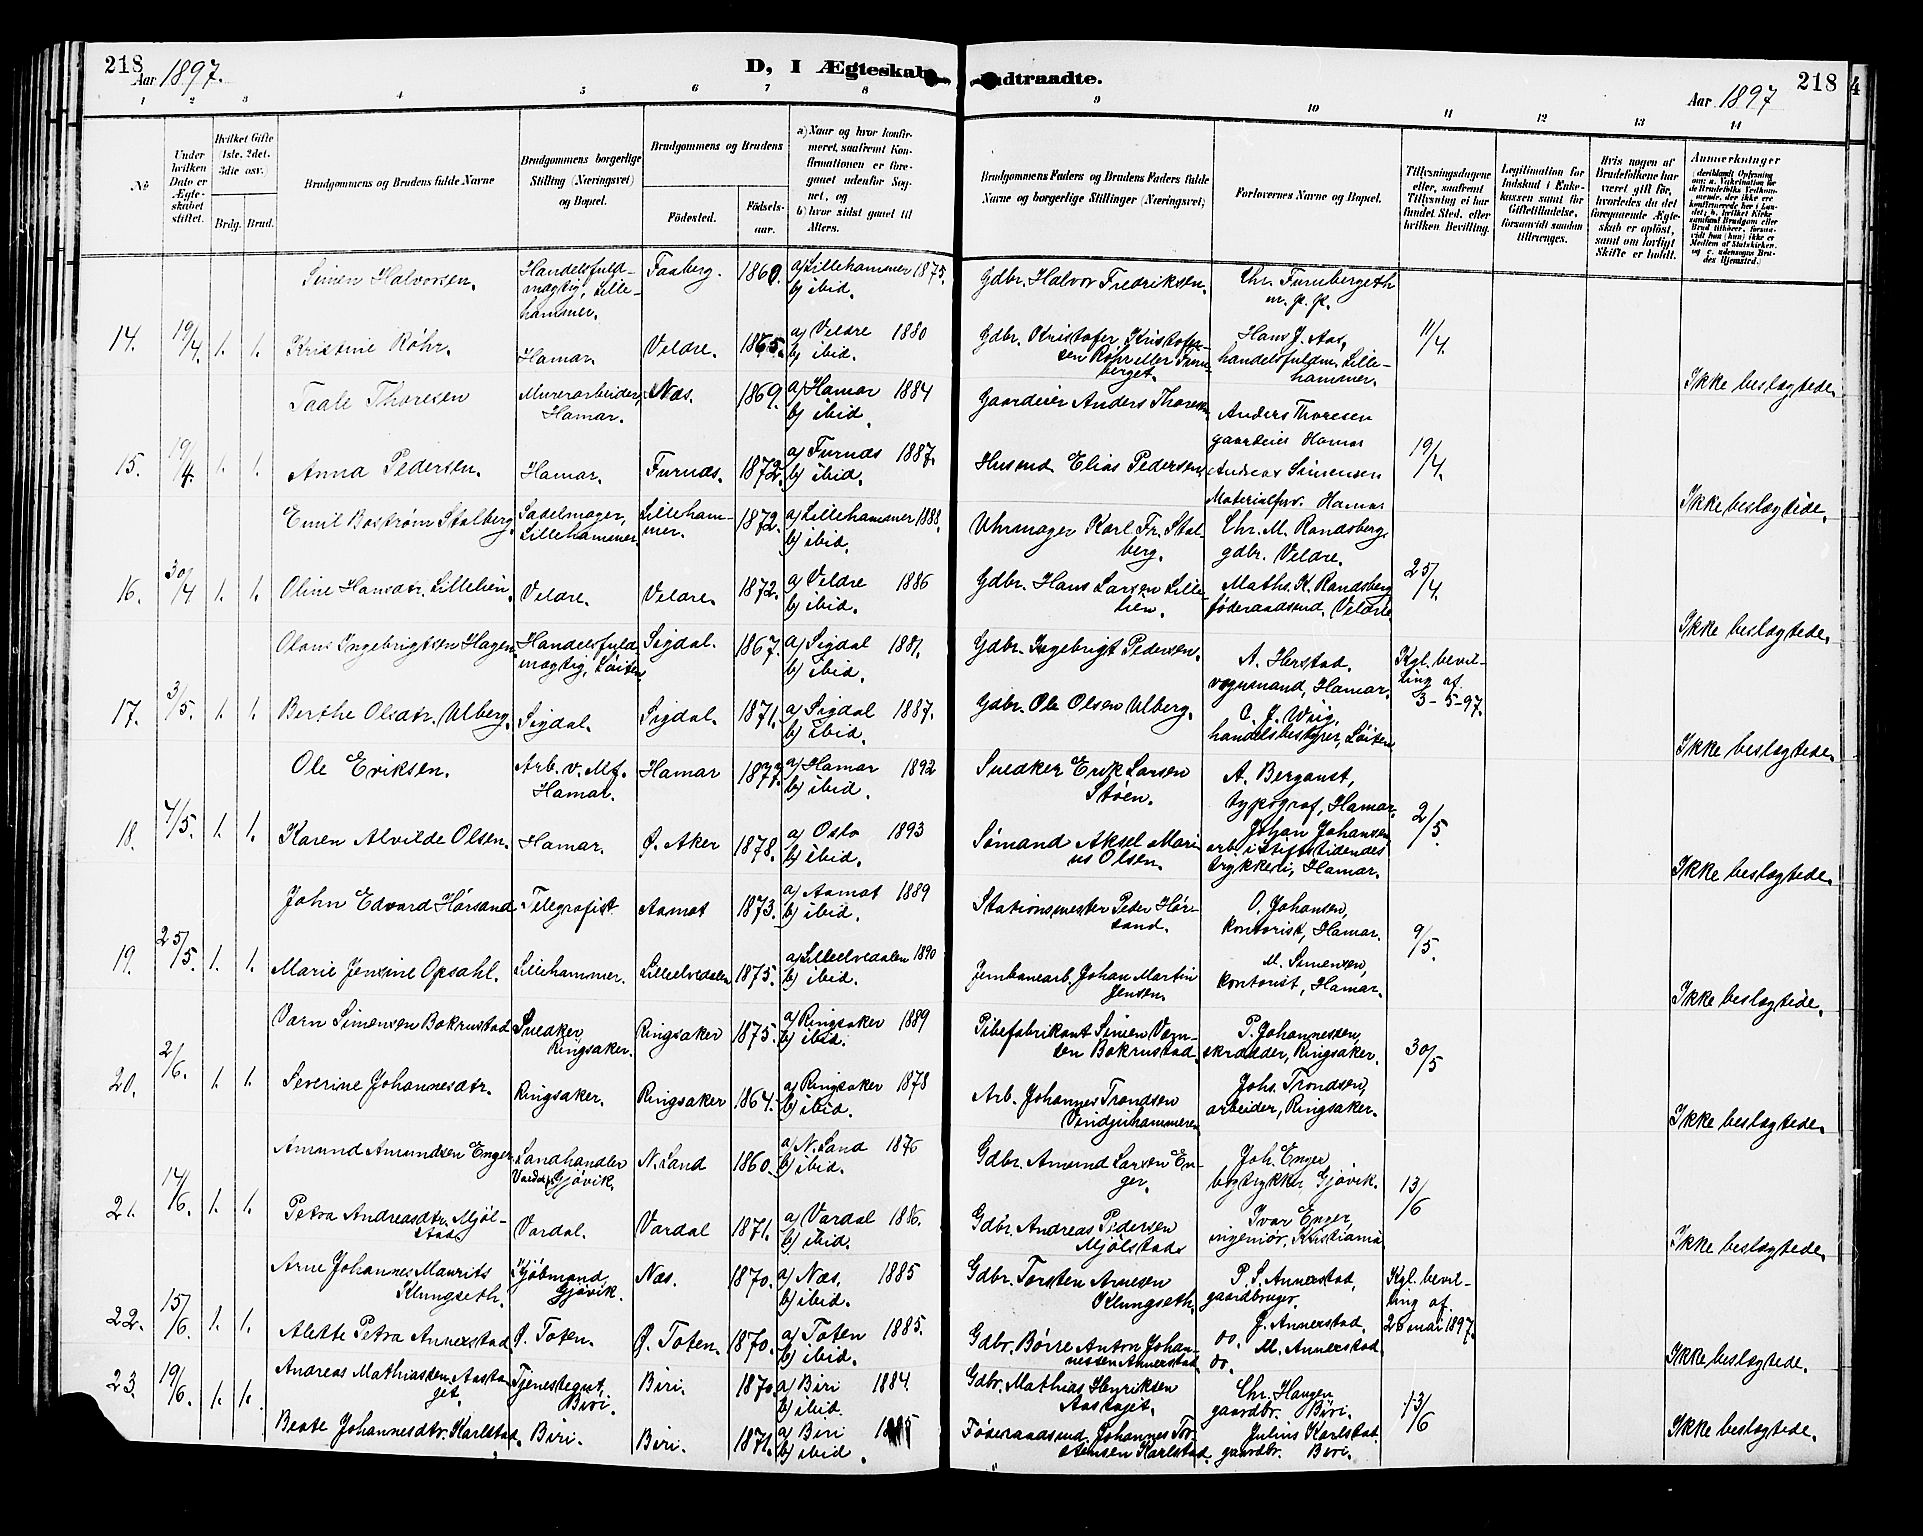 218
Aar 1897.
D, I Ægteskab Indtraadte.
218
Aar 1897
1 2 3 4 5 6 7 8 9 10 11 12 13 14
No
Under hvilken Dato er Ægteskabet stiftet.
Hvilket Gifte (1ste, 2det, 3die osv.)
Brdg. Brud.
Brudgommens og Brudens fulde Navne
Brudgommens borgerlige Stilling (Næringsvei) og Bopæl.
Brudgommens og Brudens
Födested.
Födselsaar.
a) Naar og hvor konfirmeret, saafremt Konfirmationen er foregaaet udenfor Sognet, og
b) hvor sidst gaaet til Alters.
Brudgommens Faders og Brudens Faders fulde Navne og borgerlige Stillinger (Næringsvei)
Forlovernes Navne og Bopæl.
Tillysningsdagene eller, saafremt Tillysning ei har fundet Sted, efter hvilken Bevilling.
Legitimation for Indskud i Enkekassen samt for Giftetilladelse, forsaavidt saadan tiltrænges.
Hvis nogen af Brudefolkene har været gift för, hvorledes da det foregaaende Ægteskab er oplöst, samt om lovligt Skifte er holdt.
Anmerkninger
Simen Halvorsen.
Handelsfuldmægtig, Lillehammer.
Faaberg. 1860. a) Lillehammer 1875.
b) ibid.
Gdbr. Halvor Fredriksen.
Chr. Furubergeth
m. p. p.
14. 19/4. 1. 1. Kristine Røhr.
Hamar. Veldre. 1865. a) Veldre 1880
b) ibid.
Gdbr. Kristofer Kristoffersen Røhr eller Furuberget.
Hans J. Aas,
handelsfuldm. Lillehammer.
11/4.
Ikke beslægtede.
Taale Thoresen
Murerarbeider, Hamar.
Næs. 1869. a) Hamar 1884
b) ibid.
Gaardeier Anders Thoresen
Anders Thoresen
gaardeier Hamar
15. 19/4. 1. 1. Anna Pedersen.
Hamar. Furnæs. 1872. a) Furnæs 1887.
b) ibid.
Husmd Elias Pedersen
Andreas Simensen
Materialforv. Hamar
19/4.
Ikke beslægtede.
Emil Bostrøm Stalberg.
Sadelmager, Lillehammer.
Lillehammer. 1872. a) Lillehammer 1888.
b) ibid.
Uhrmager Karl Fr. Stalberg.
Chr. M. Randsberg
gdbr. Veldre.
16. 30/4 1. 1. Oline Hansdtr. Lillehien.
Veldre. Veldre. 1872. a) Veldre 1886
b) ibid.
Gdbr. Hans Larsen Lillehien.
Maths. K. Randsberg
föderaadsmd, Veldre
25/4.
Ikke beslægtede.
Olaus Ingebrigtsen Hagen.
Handelsfuldmægtig, Löiten
Sigdal. 1867. a) Sigdal 1881.
b) ibid.
Gdbr. Ingebrigt Pedersen.
A. Herstad,
vognmand, Hamar.
Kgl. bevilling af
3-5-97.
17. 3/5. 1. 1. Berthe Olsdtr. Ulberg.
Sigdal. Sigdal. 1871. a) Sigdal 1887.
b) ibid.
Gdbr. Ole Olsen Ulberg.
handelsbestyrer, Löiten
Ikke beslægtede.
Ole Eriksen.
Arb. v. Mf. Hamar.
Hamar 1877. a) Hamar 1892
b) ibid.
Snedker Erik Larsen Støen.
A. Berganst,
typograf, Hamar.
18. 7/5. 1. 1. Karen Alvilde Olsen.
Hamar. Ø. Aker 1878. a) Oslo 1893
b) ibid.
Sömand Aksel Marius Olsen.
Johan Johansen
arb. i Stiftstidendes
trykkeri, Hamar.
2/5.
Ikke beslægtede.
John Edvard Hörsand.
Telegrafist. Aamot 1873. a) Aamot 1889
b) ibid.
Stationsmester Peder Hörsand.
O. Johansen,
kontorist, Hamar.
19. 25/5. 1. 1. Marie Jensine Opsahl.
Lillehammer. Lilleelvedalen 1875. a) Lilleelvedalen 1890
b) ibid.
Jernbanearb. Johan Martin Jensen.
M. Simensen,
kontorist, Hamar.
9/5.
Ikke beslægtede.
Varn Simensen Bakrustad
Snedker, Ringsaker.
Ringsaker 1875. a) Ringsaker 1889
b) ibid.
Pibefabrikant Simen Varnsen Bakrustad.
P. Johannessen,
skrædder, Ringsaker.
20. 2/6. 1. 1. Severine Johannesdtr.
Ringsaker. Ringsaker 1864. a) Ringsaker 1878
b) ibid.
Arb. Johannes Trondsen Vindjuhammeren
Johs. Trondsen,
arbeider, Ringsaker.
30/5
Ikke beslægtede.
Amund Amundsen Enger
Landhandler Vardal, Gjøvik.
N. Land 1860. a) N. Land 1876
b) ibid.
Gdbr. Amund Larsen Enger.
Joh. Enger
bogtrykker, Gjøvik.
21. 14/6. 1. 1. Petra Andreasdtr. Mjölstad.
Vardal. Vardal 1871. a) Vardal 1886.
b) ibid.
Gdbr. Andreas Pedersen Mjölstad.
Ivar Enger,
ingeniör, Kristiania.
13/6
Ikke beslægtede.
Arne Johannes Maurits Klungseth.
Kjöbmand, Gjøvik.
Næs. 1870. a) Næs, 1885
b) ibid.
Gdbr. Torsten Arnesen Klungseth.
P. S. Annerstad,
gaardbruger.
Kgl. bevilling af.
26 mai 1897.
22. 15/6. 1. 1. Alette Petra Annerstad
Ø. Toten. Ø. Toten. 1870. a) Toten 1885.
b) ibid.
Gdbr. Börre Anton Johannessen Annerstad
J. Annerstad,
do.
M. Annerstad
do.
Ikke beslægtede.
23. 19/6. 1. 1. Andreas Mathiassen Aastaget.
Tjenestegut, Biri.
Biri. 1870. a) Biri 1884.
b) ibid.
Gdbr. Mathias Henriksen Aastaget.
Chr. Haugen
gaardbr. Biri.
13/6
Beate Johannesdtr. Karlstad.
Biri. Biri. 1871. a) Biri
b) ibid.
Föderaadsmd. Johannes Torstensen Karlstad.
Julius Karlstad,
gaardbr. Biri.
Ikke beslægtede.